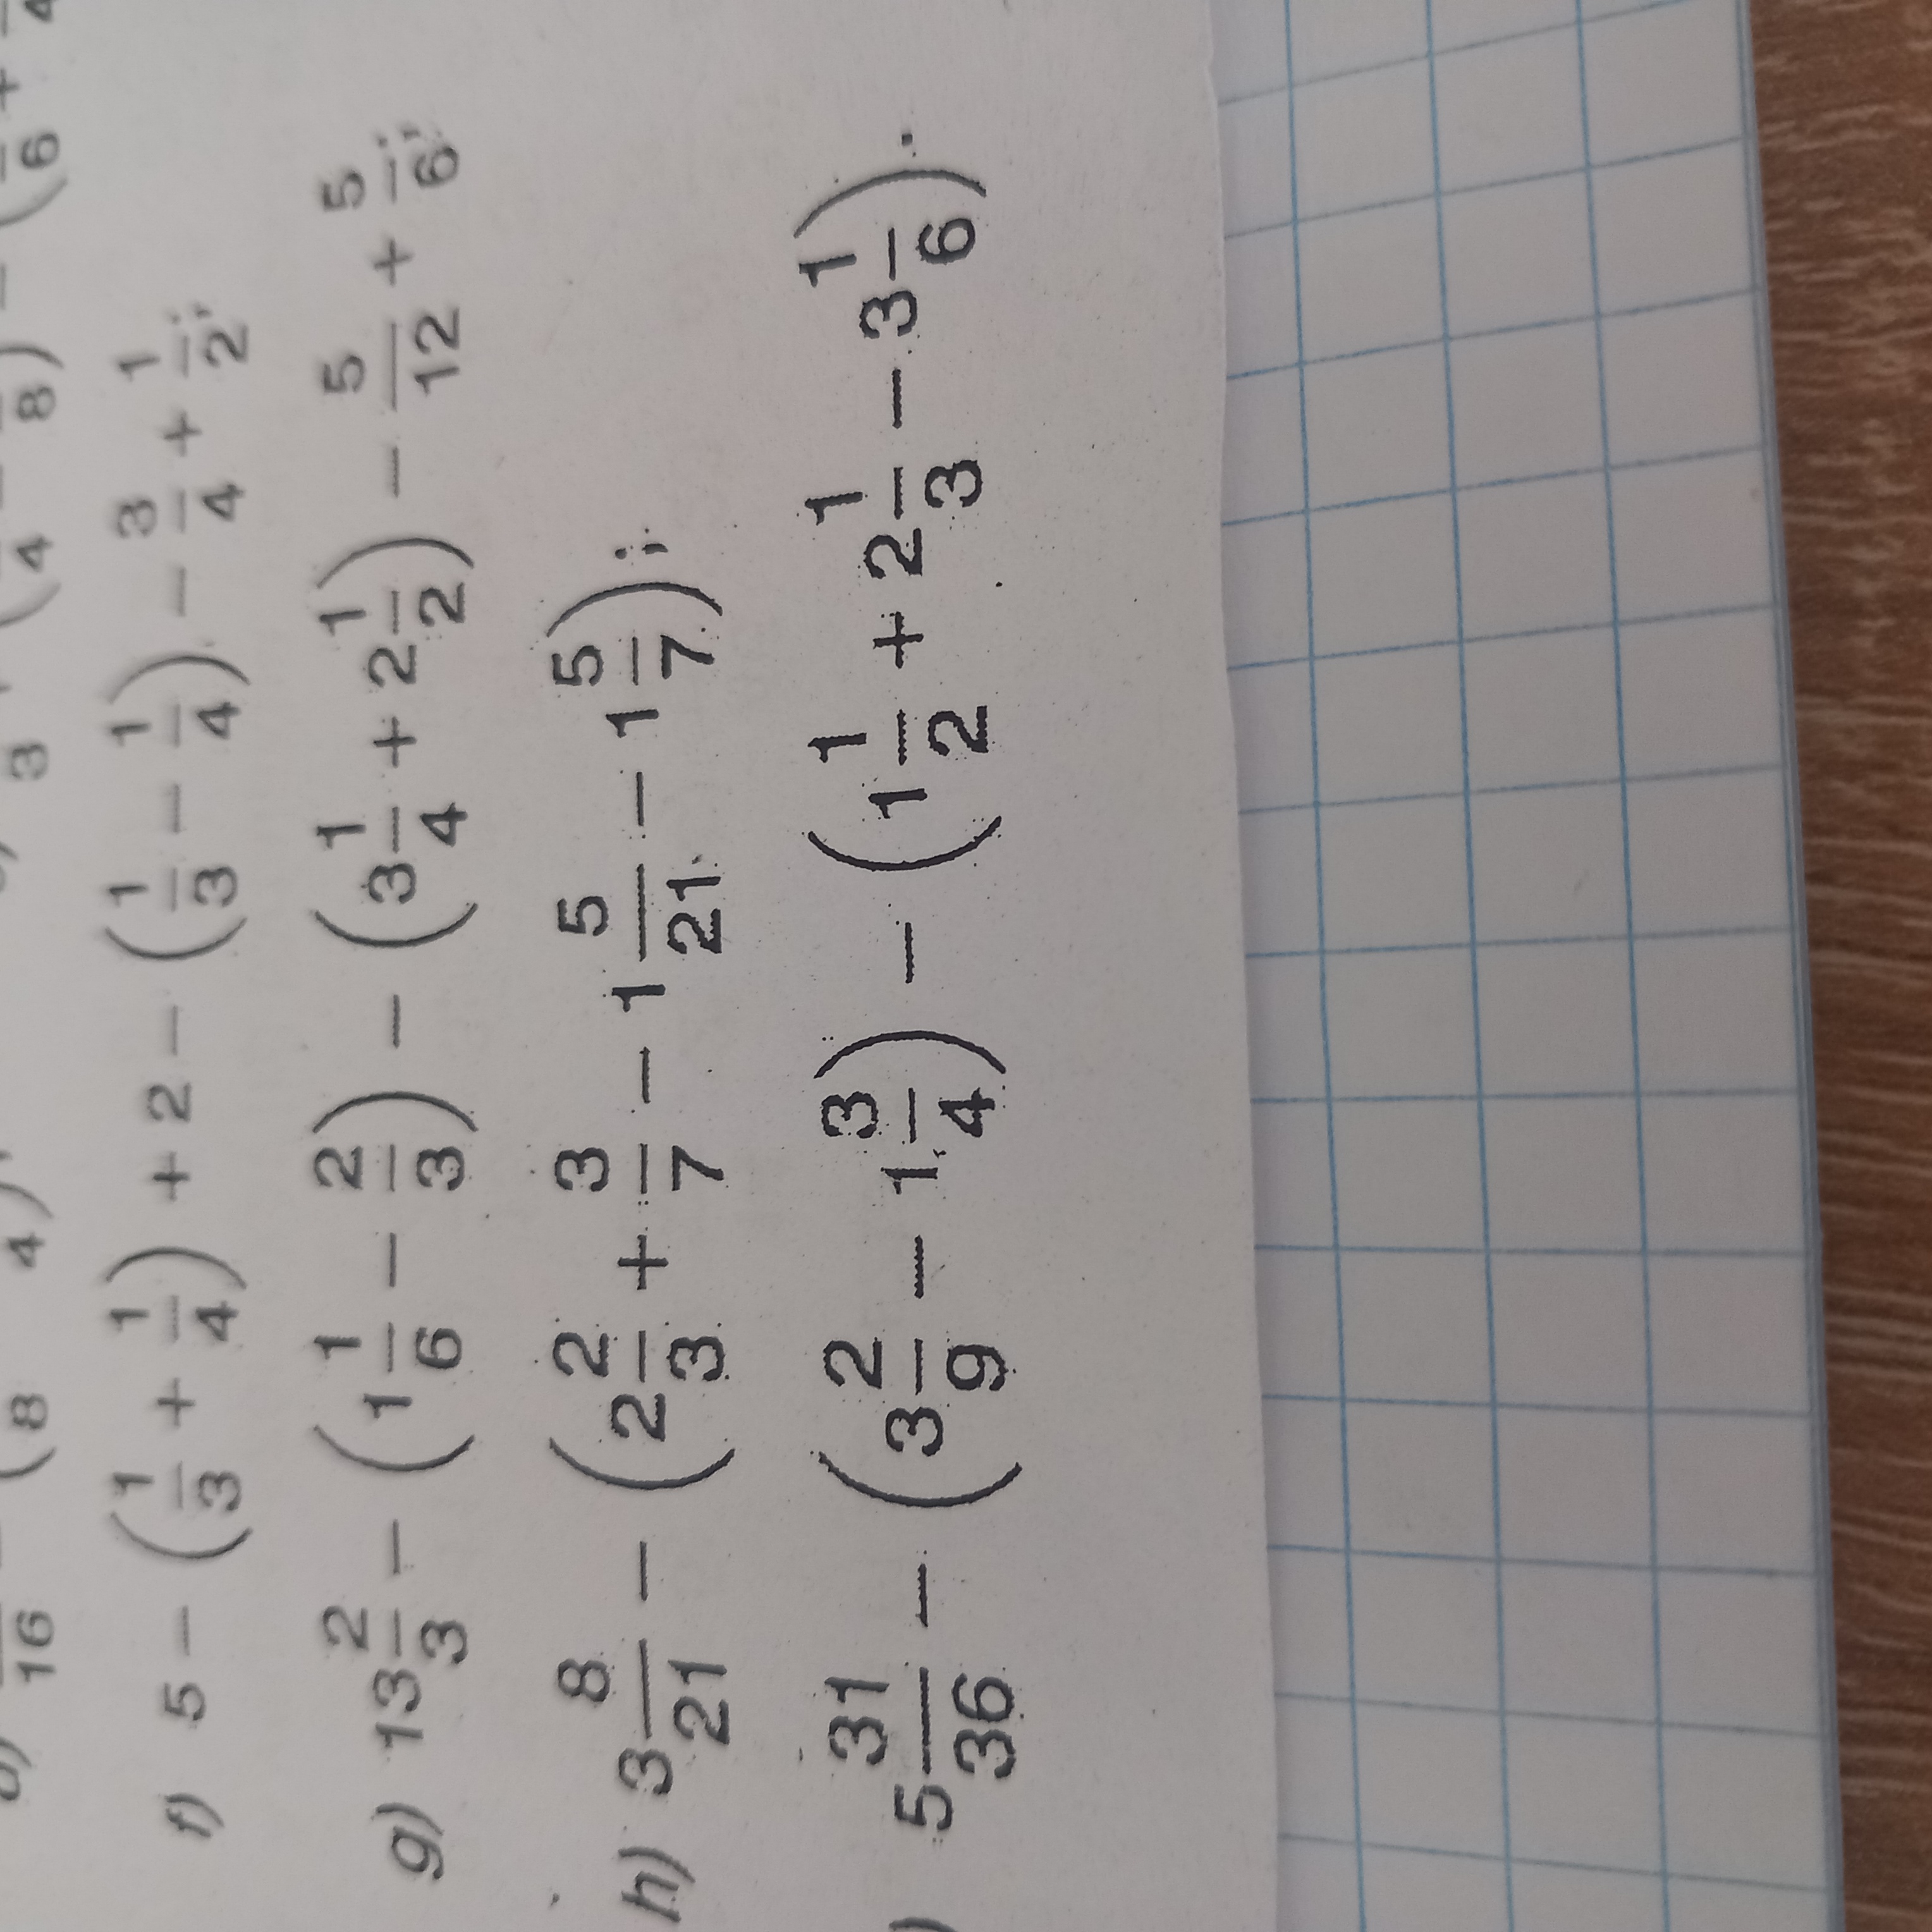 f) 5 - (1/3 + 1/4) + 2 - (1/3 - 1/4) - 3/4 + 1/2;
g) 13 2/3 - (1 1/6 - 2/3) - (3 1/4 + 2 1/2) - 5/12 + 5/6;
h) 3 8/21 - (2 2/3 + 3/7 - 1 5/21 - 1 5/7);
) 5 31/36 - (3 2/9 - 1 3/4) - (1 1/2 + 2 1/3 - 3 1/6).